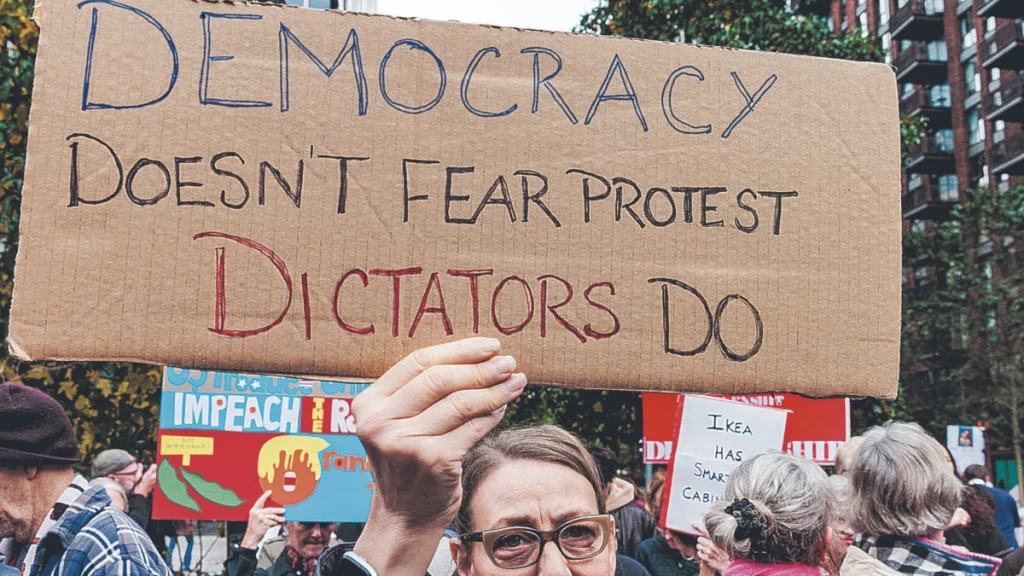 DEMOCRACY
DOESN'T FEAR PROTEST
DICTATORS DO
IMPEACH THE
IKEA
HAS